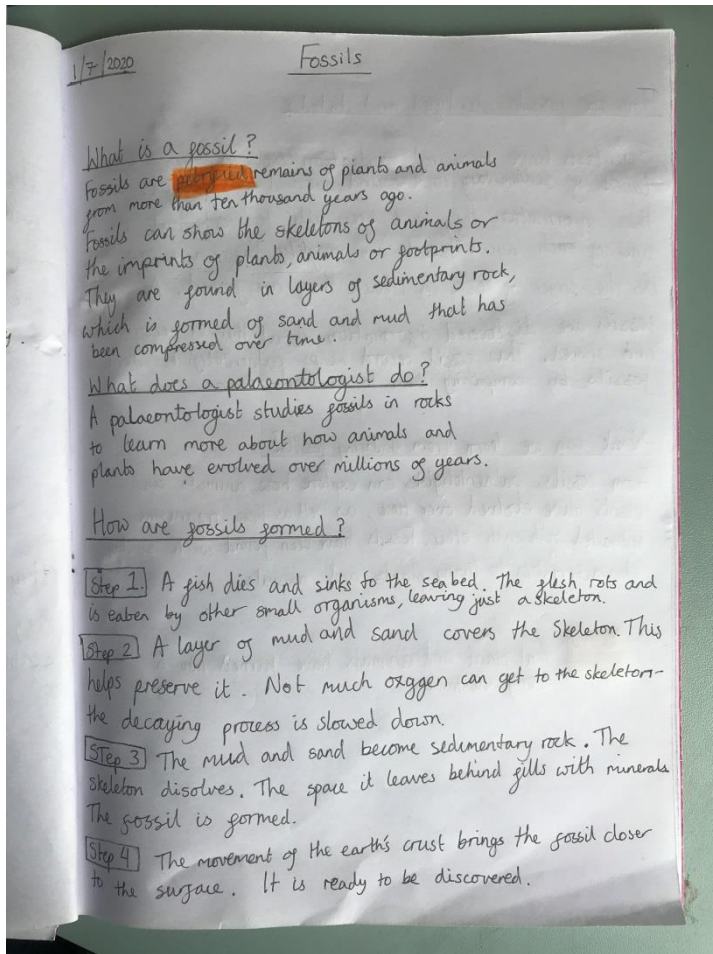 1/7/2020
Fossils
What is a fossil?
Fossils are petrified remains of plants and animals
from more than ten thousand years ago.
Fossils can show the skeletons of animals or
the imprints of plants, animals or footprints.
They are found in layers of sedimentary rock,
which is formed of sand and mud that has
been compressed over time.
What does a palaeontologist do?
A palaeontologist studies fossils in rocks
to learn more about how animals and
plants have evolved over millions of years.
How are fossils formed?
Step 1. A fish dies and sinks to the seabed. The flesh rots and
is eaten by other small organisms, leaving just a skeleton.
Step 2 A layer of mud and sand covers the skeleton. This
helps preserve it. Not much oxygen can get to the skeleton-
the decaying process is slowed down.
STep 3 The mud and sand become sedimentary rock. The
skeleton disolves. The space it leaves behind fills with minerals
The fossil is formed.
Step 4 The movement of the earth's crust brings the fossil closer
to the surface. It is ready to be discovered.